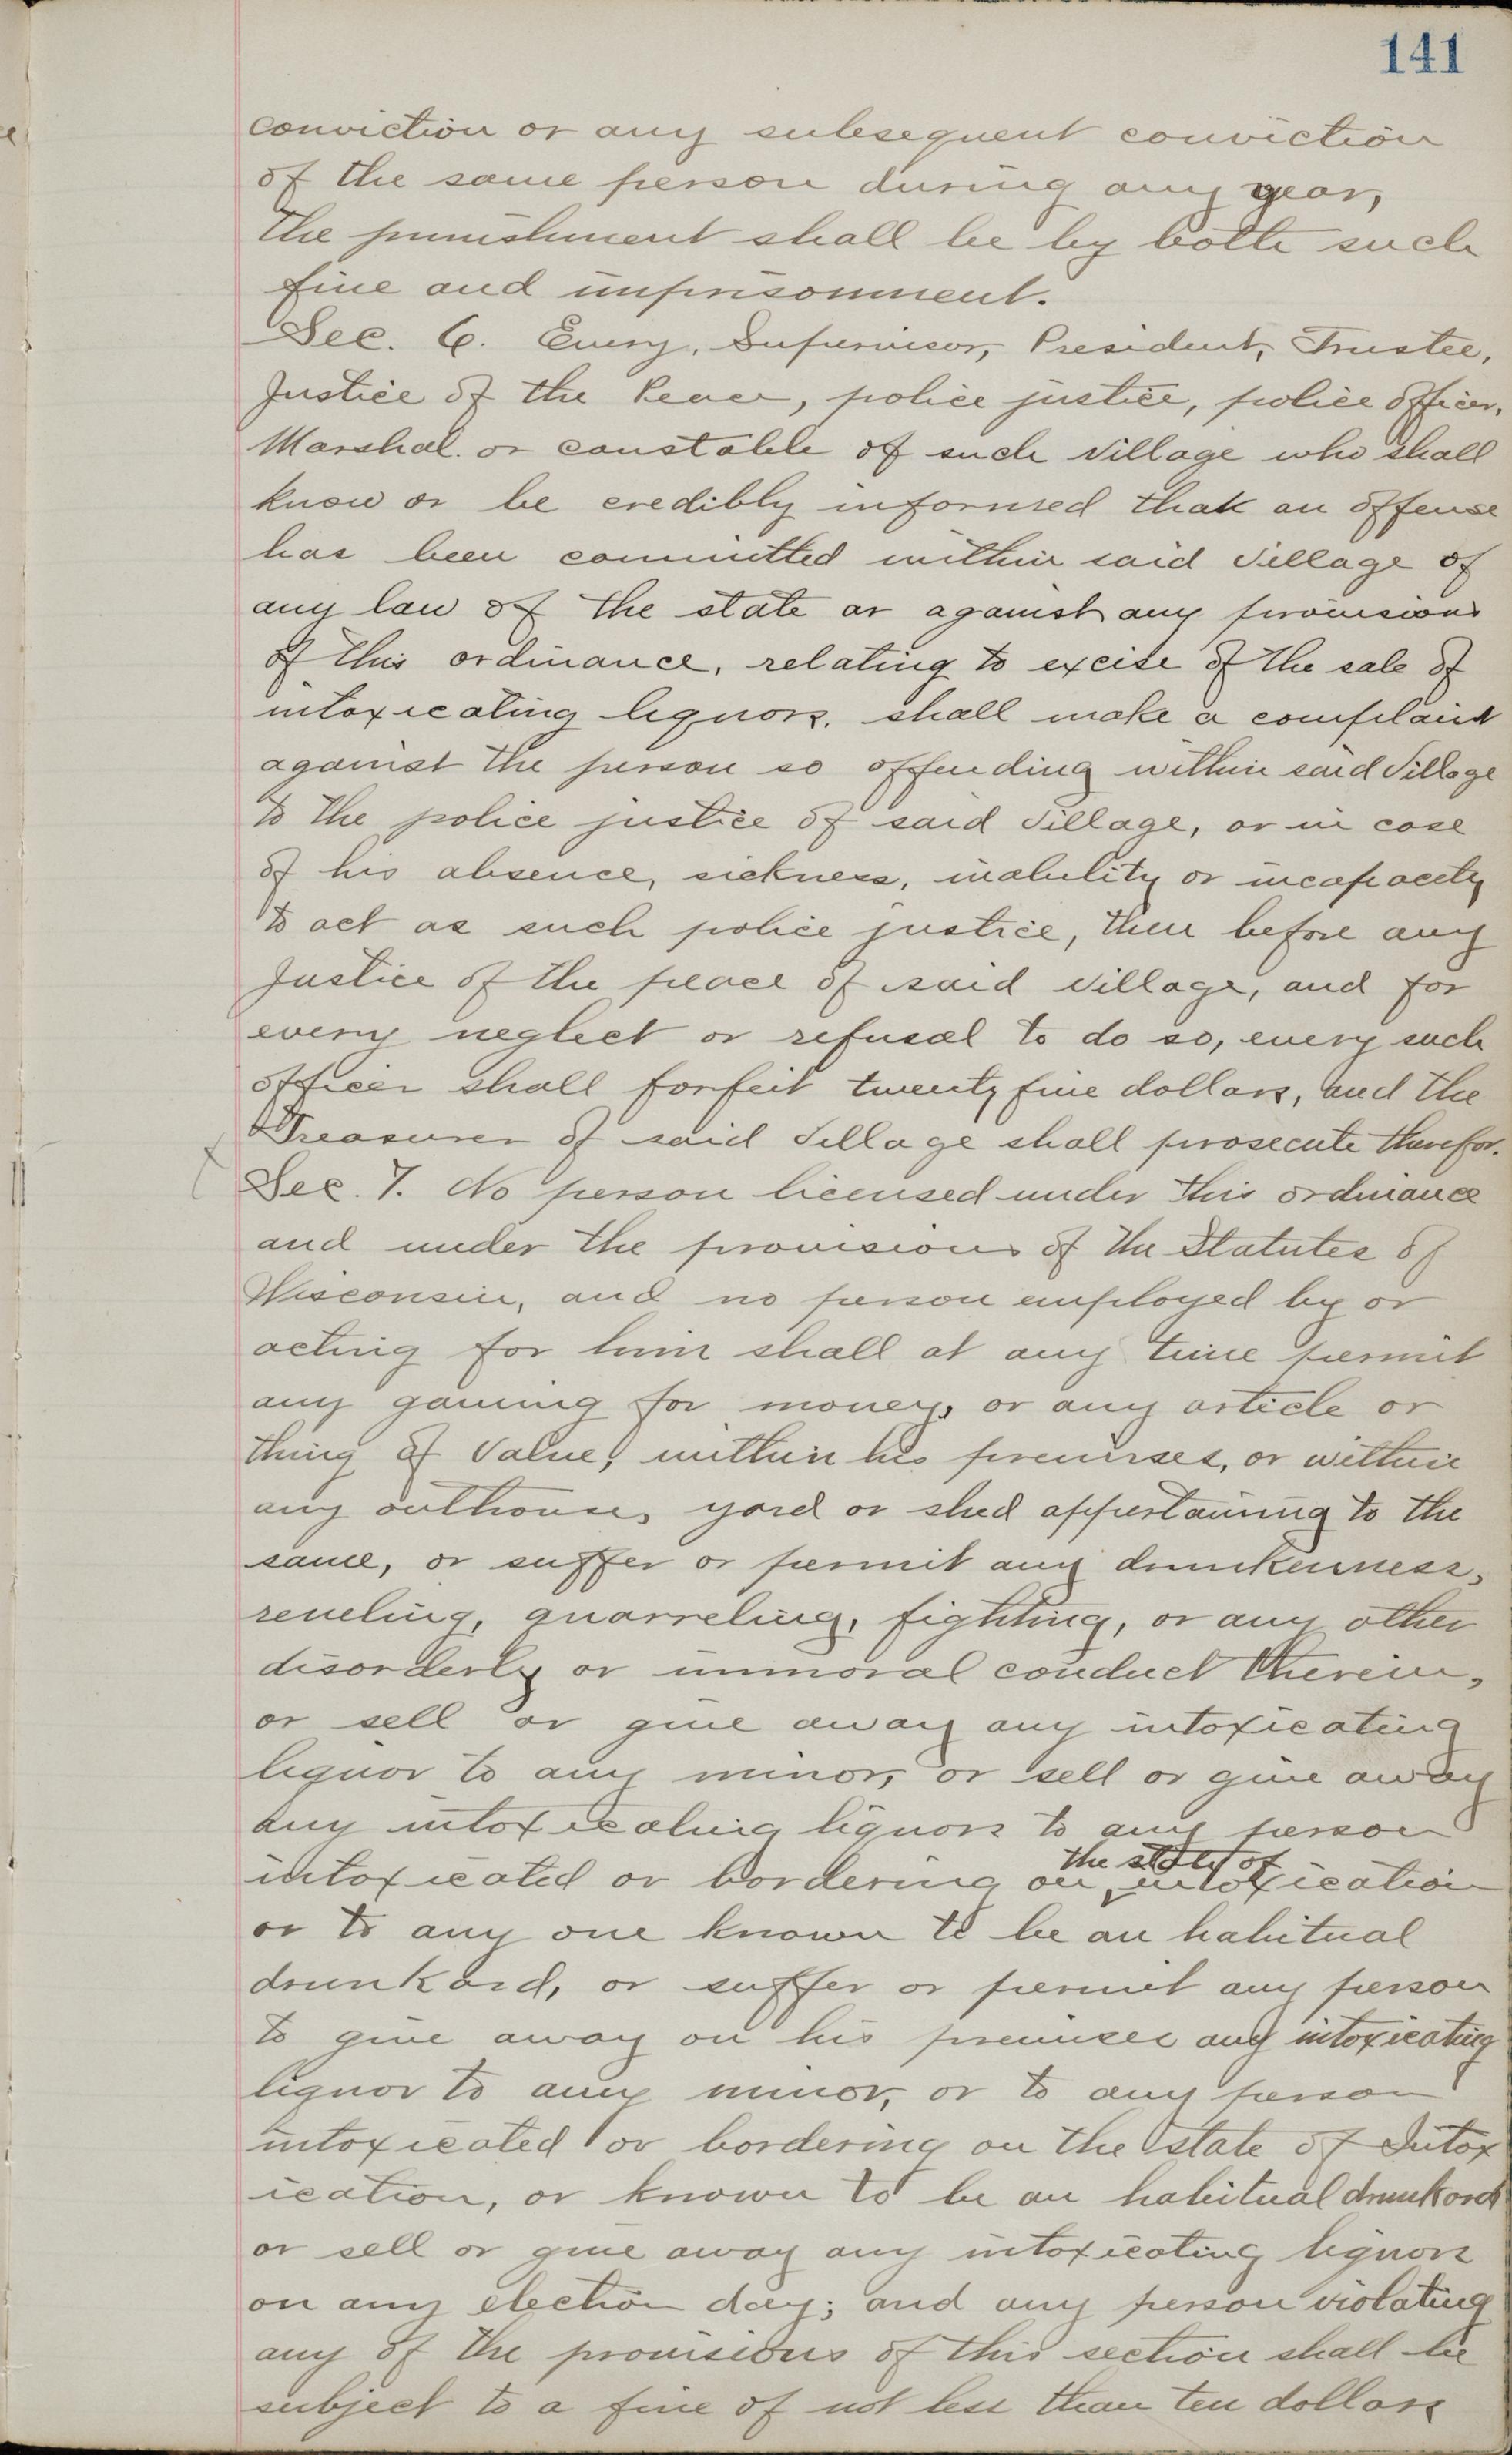 141
conviction or any subsequent conviction
of the same person during any year,
the punishment shall be by both such
fine and imprisonment.
Sec. 6. Every, Supervisor, President, Trustee,
Justice of the Peace, police justice, police officer,
Marshal. or constable of such Village who shall
know or be credibly informed that an offense
has been committed within said Village of
any law of the state or against any provisions
of this ordinance, relating to excise of the sale of
intoxicating liquors. shall make a complaint
against the person so offending within said Village
to the police justice of said Village, or in case
of his absence, sickness, inability or incapacity
to act as such police justice, then before any
Justice of the peace of said Village, and for
every neglect or refusal to do so, every such
officer shall forfeit twenty five dollars, and the
Treasurer of said Village shall prosecute therefor.
Sec. 7. No person licensed under this ordinance
and under the provisions of the Statutes of
Wisconsin, and no person employed by or
acting for him shall at any time permit
any gaming for money, or any article or
thing of Value, within his premises, or within
any outhouse, yard or shed appertaining to the
same, or suffer or permit any drunkenness,
reveling, quarreling, fighting, or any other
disorderly or immoral conduct therein,
or sell or give away any intoxicating
liquor to any minor, or sell or give away
any intoxicating liquors to any person
the state of
intoxicated or bordering on intoxication
or to any one known to be an habitual
drunkard, or suffer or permit any person
to give away on his premises any intoxicating
liquor to any minor, or to any person
intoxicated or bordering on the state of Intox
ication, or known to be an habitual drunkard
or sell or give away any intoxicating liquors
on any election day; and any person violating
any of the provisions of this section shall be
subject to a fine of not less than ten dollars